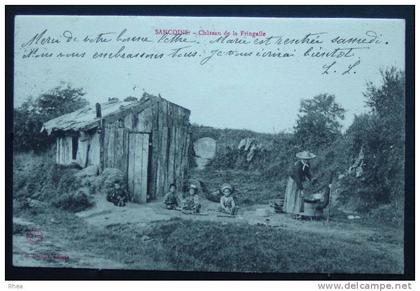 SANCOINS. - Château de la Fringalle
Merci de votre bonne lettre. Marie est rentrée samedi.
Nous vous embrassons tous. Je vous écrirai bientôt
L. L.
http://collection-jfm.fr